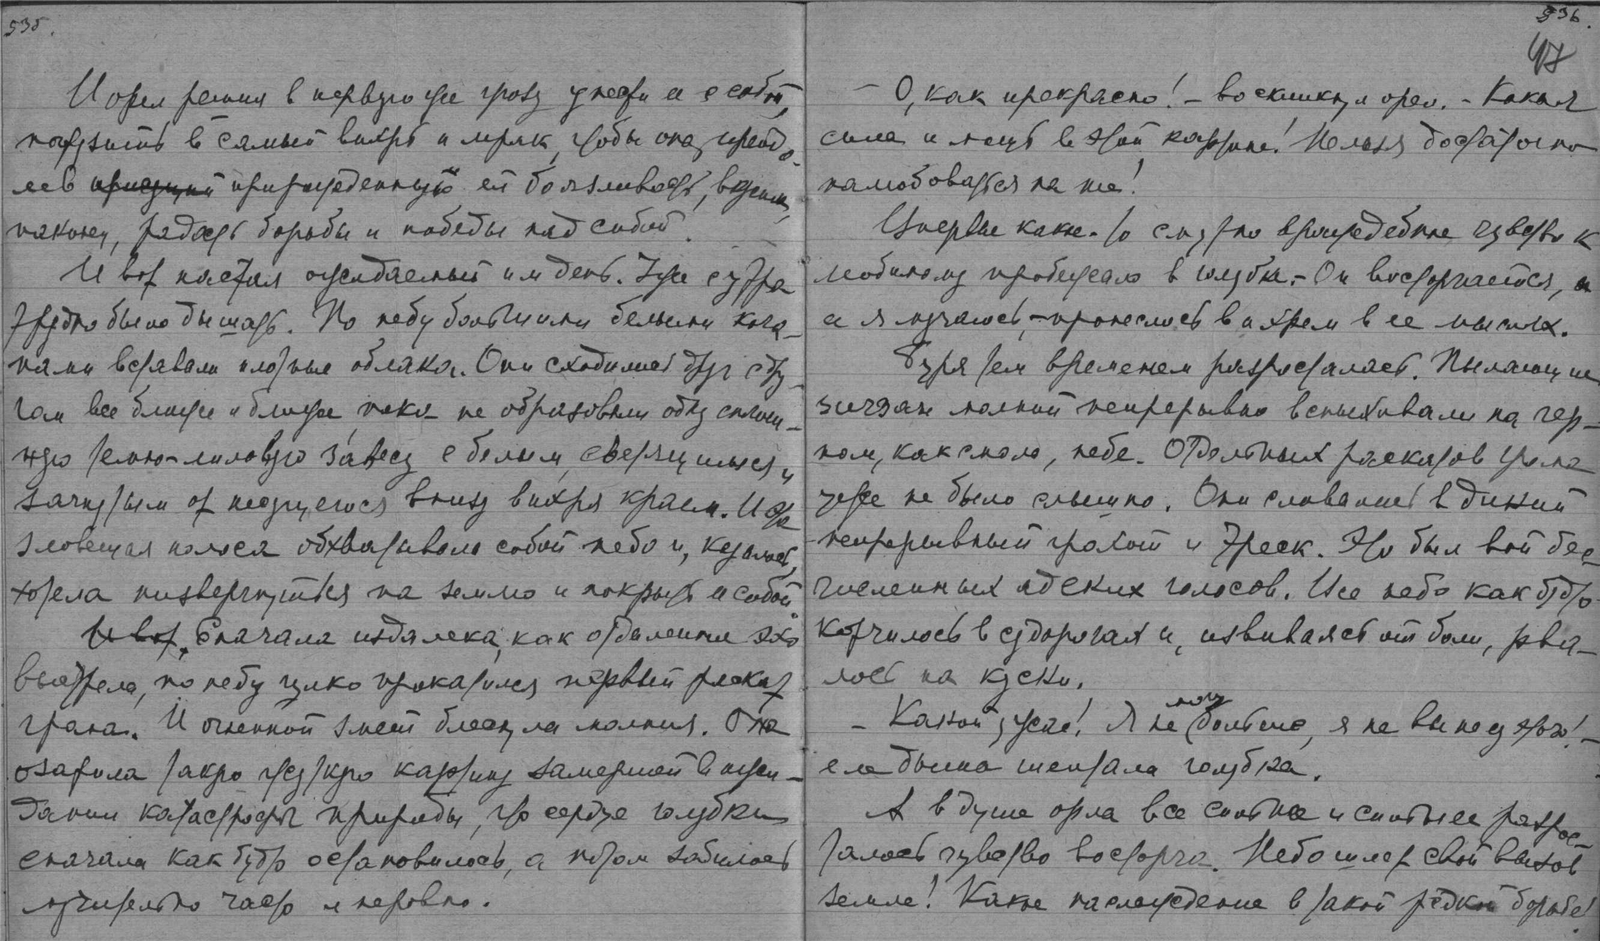 535.
И орел решил в первую же грозу унести ее с собой,
погрузить в самый вихрь и мрак, чтобы она, преодо-
лев присущий прирожденную ей боязливость, вкусила,
наконец, радость борьбы и победы над собой.
И вот настал ожидаемый им день. Уже с утра
трудно было дышать. По небу большими белыми коча-
нами вставали плотные облака. Они сходились друг с дру-
гом все ближе и ближе, пока не образовали одну сплош-
ную темно-лиловую завесу с белым, сверкающимся и
загнутым от несущегося внизу вихря краем. И эта
зловещая полоса обхватывала собой небо и, казалось,
хотела низвергнуться на землю и покрыть ее собой.
И вот, Сначала издалека, как отдаленное эхо
выстрела, по небу гулко прокатился первый раскат
грома. И огненной змеей блеснула молния. Она
озарила такую жуткую картину замершей в ожи-
дании катастрофы природы, что сердце голубки
сначала как будто остановилось, а потом забилось
мучительно часто и неровно.
536.
47
– О, как прекрасно! – воскликнул орел. – Какая
сила и мощь в этой картине! Нельзя достаточно
налюбоваться на нее!
Впервые какое-то смутно враждебное чувство к
любимому пробежало в голубке. – Он восторгается,
а я мучаюсь, – пронеслось вихрем в ее мыслях.
Буря тем временем разрасталась. Пылающие
зигзаги молний непрерывно вспыхивали на чер-
ном, как смоль, небе. Отдельных раскатов грома
уже не было слышно. Они сливались в дикий
непрерывный грохот и треск. Это был вой бес-
численных адских голосов. Все небо как будто
корчилось в судорогах и, извиваясь от боли, рва-
лось на куски.
– Какой ужас! Я не могу больше, я не вынесу этого! –
еле слышно шептала голубка.
А в душе орла все сильнее и сильнее разрас-
талось чувство восторга. Небо шлет свой вызов
земле! Какое наслаждение в такой редкой борьбе!